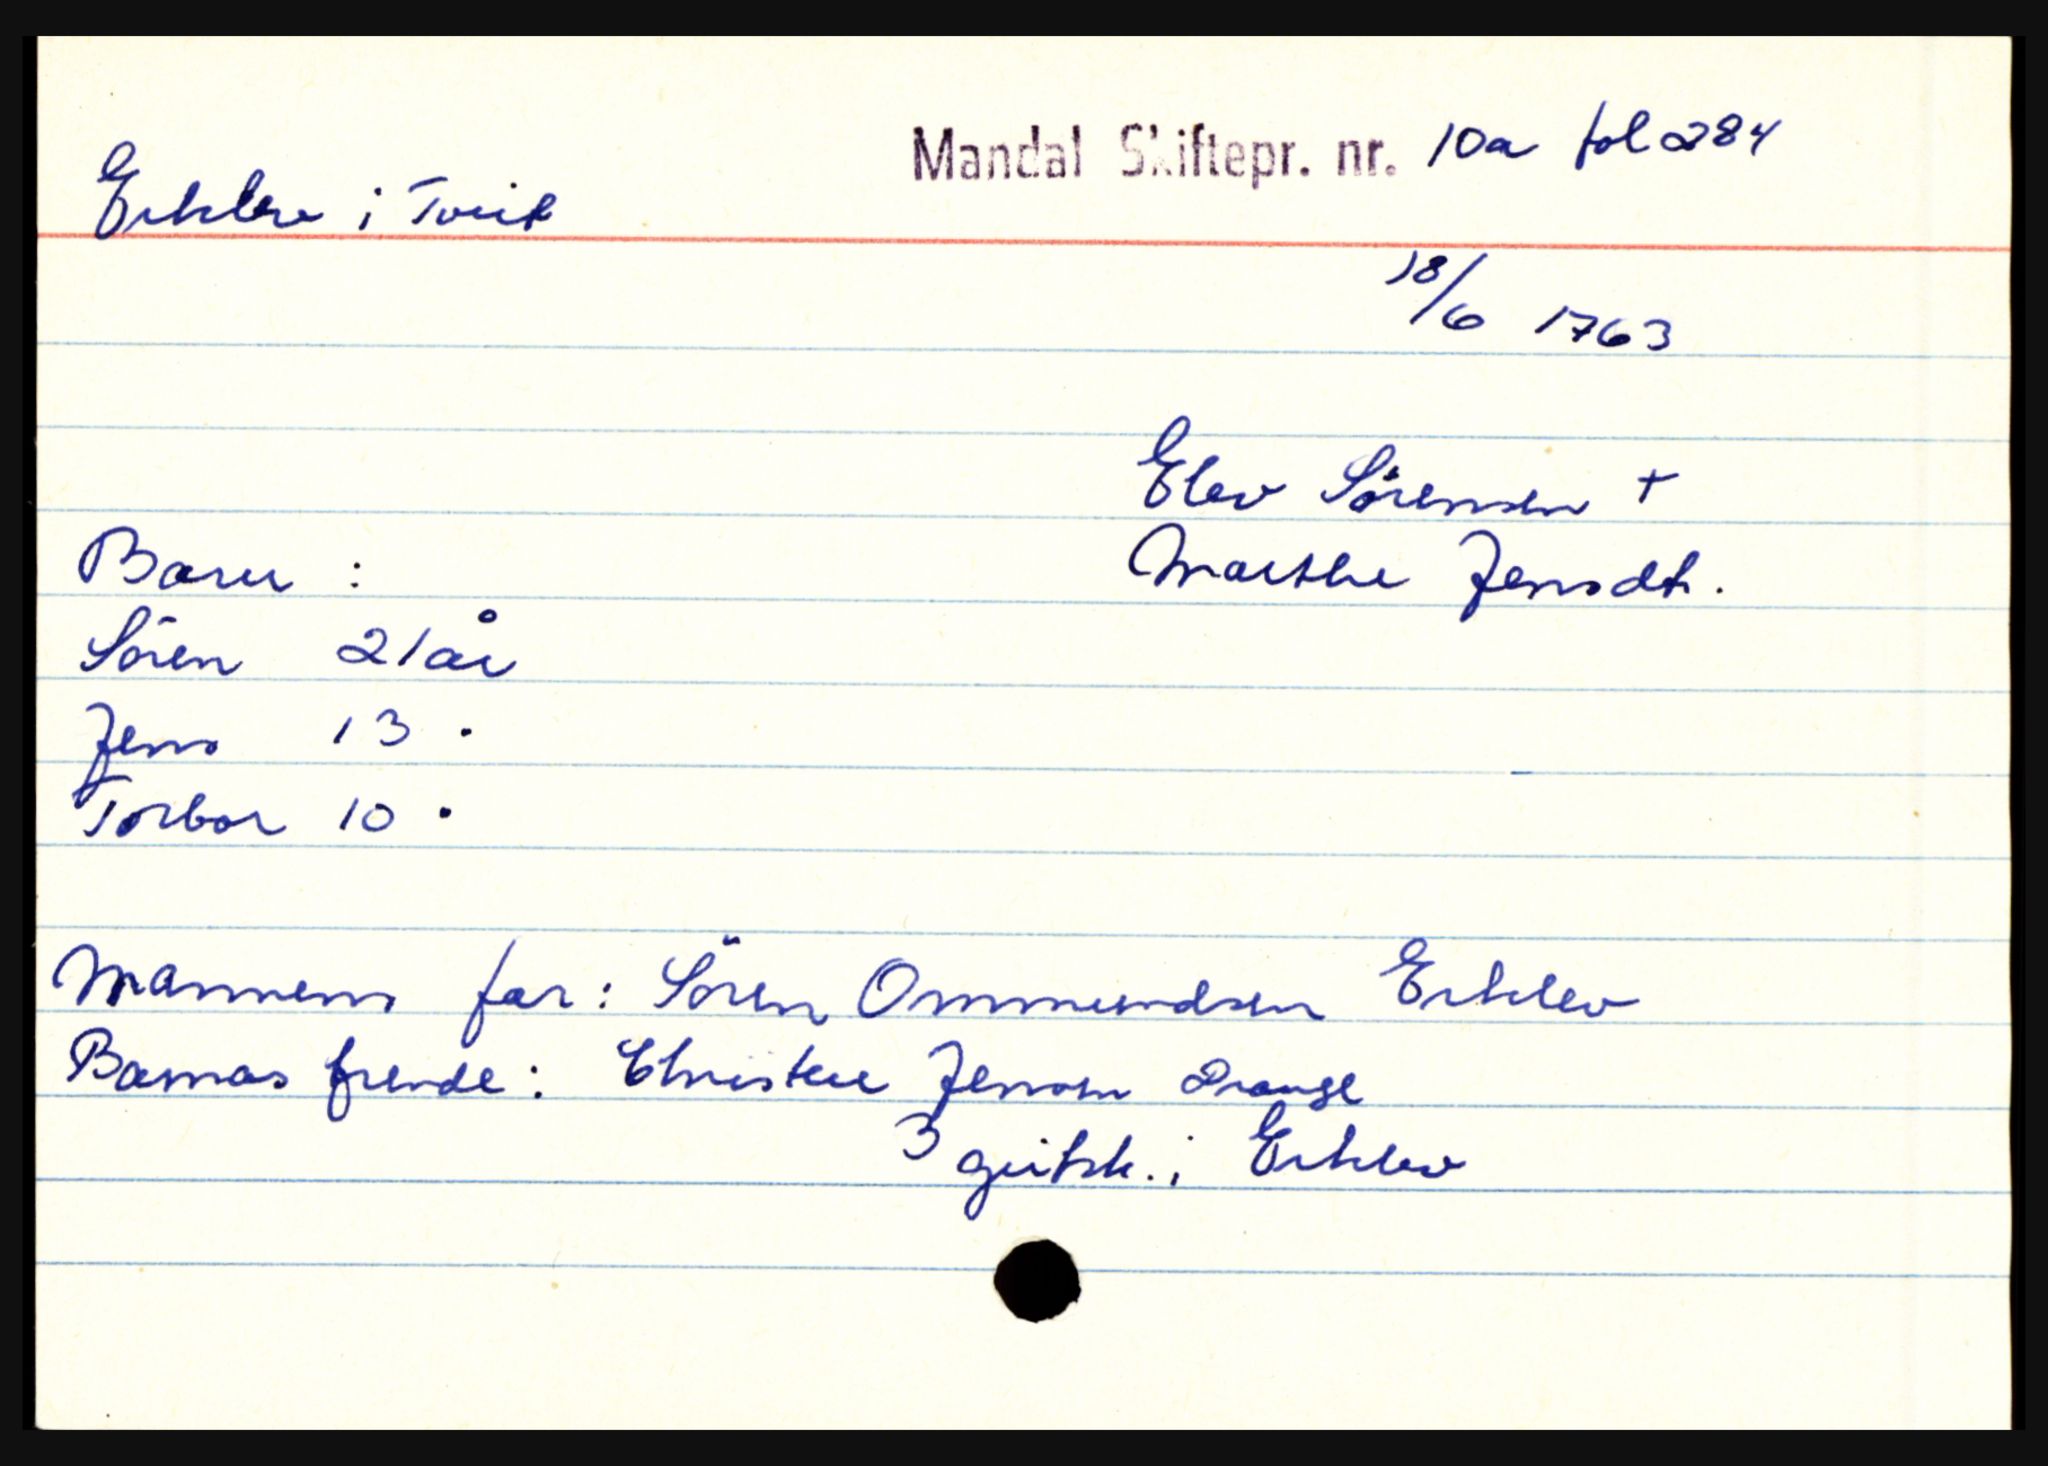 Mandal Skiftepr. nr. 10a fol 284
Erklev i Tveit
18/6 1763
Elev Sørensen +
Marthe Jensdt.
Barn :
Søren 21 år
Jens 13 .
Torbor 10 .
Mannens far : Søren Ommundsen Erklev
Barnas frende : Christen Jensen Drange
3 geitsk. i Erklev